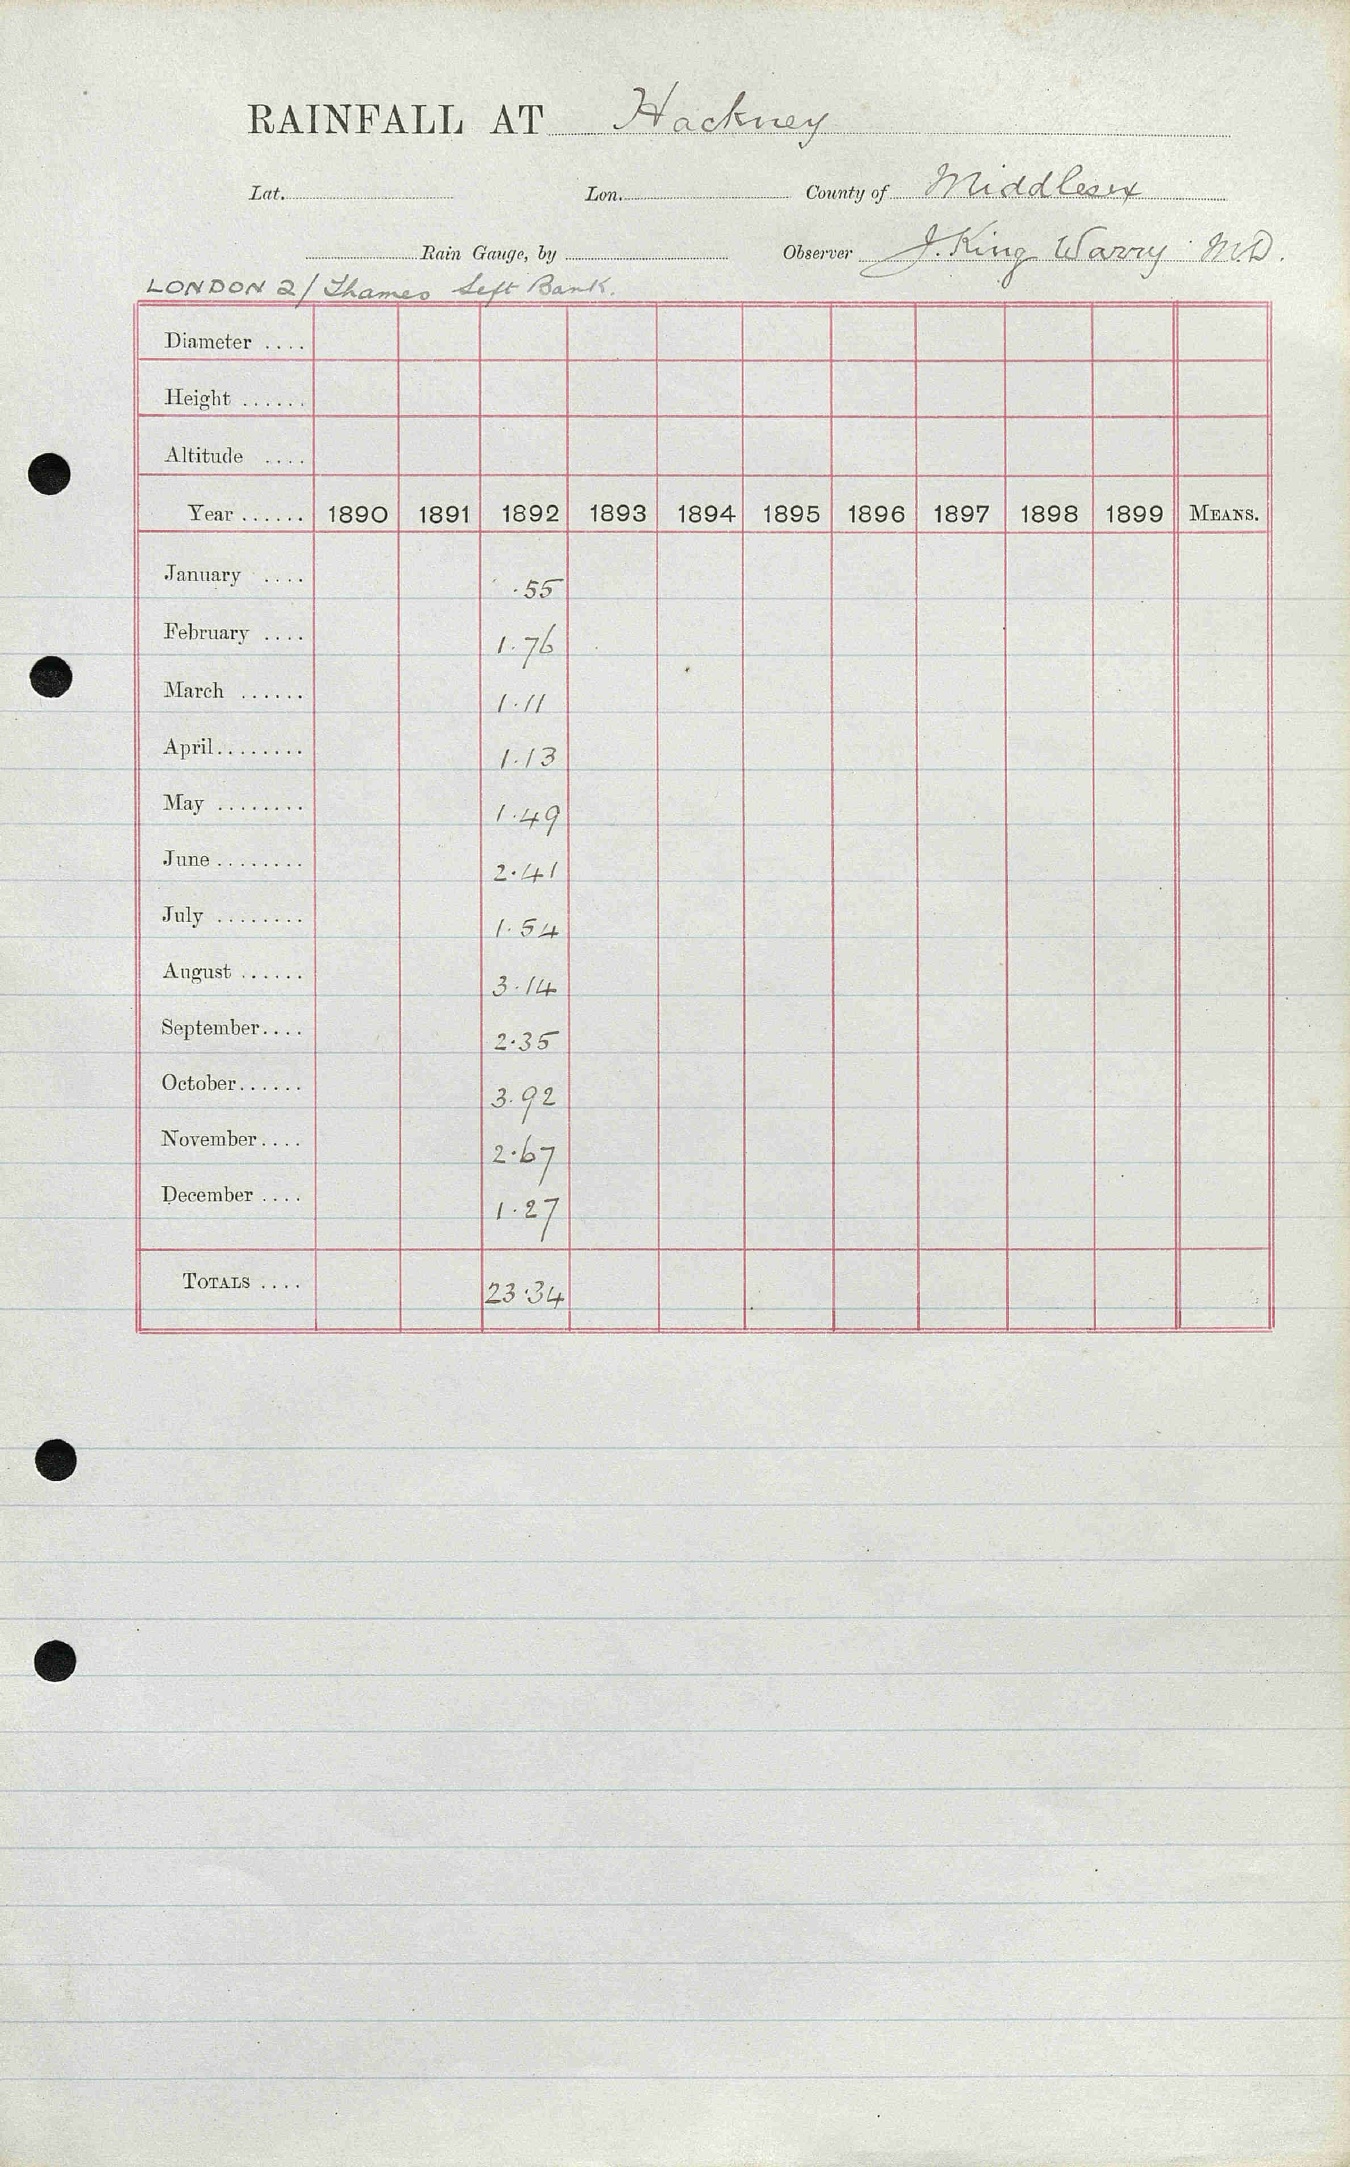 RAINFALL AT Hackney
Lat. Lon. County of Middlesex
Rain Gauge, by Observer J. King Warry M.D.
LONDON 2/ Thames Left Bank.
Diameter ....
Height ......
Altitude ....
Year ...... 1890 1891 1892 1893 1894 1895 1896 1897 1898 1899 MEANS.
January .... .55
February .... 1.76
March ...... 1.11
April........ 1.13
May ........ 1.49
June ........ 2.41
July ........ 1.54
August ...... 3.14
September.... 2.35
October...... 3.92
November.... 2.67
December .... 1.27
TOTALS .... 23.34